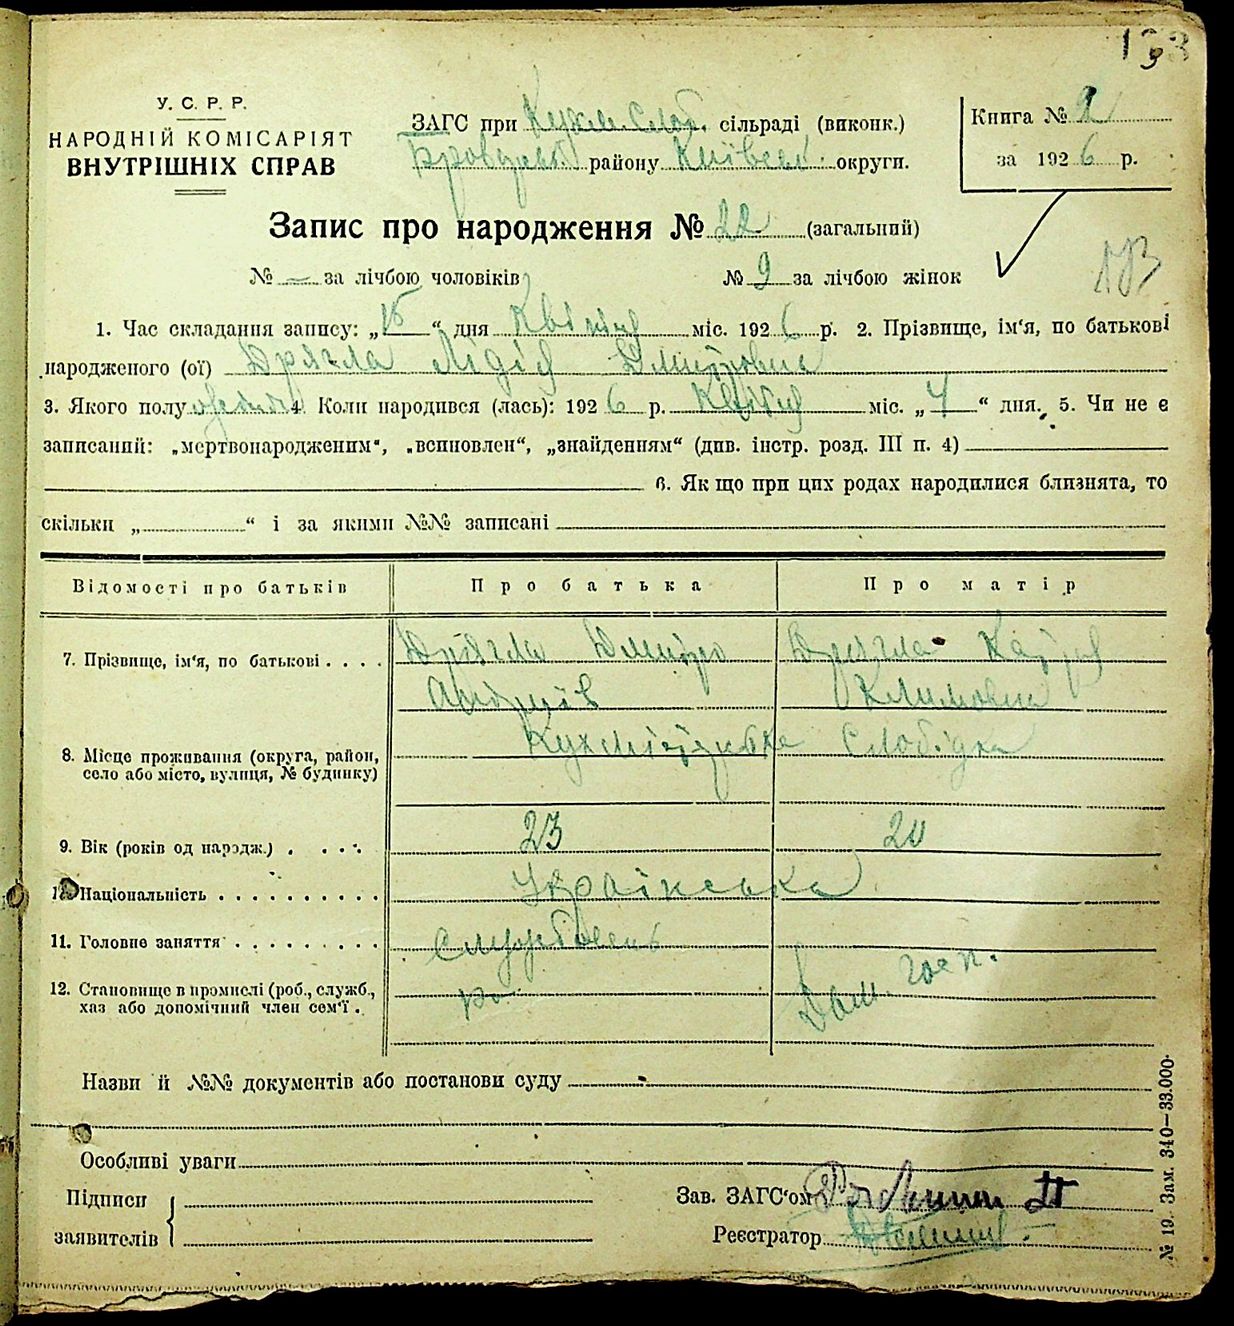 У. С. Р. Р.
НАРОДНІЙ КОМІСАРІЯТ
ВНУТРІШНІХ СПРАВ
ЗАГС при Кухм. Слоб. сільраді (виконк.)
Броварськ. району Київськ. округи.
Книга № 2
за 1926 р.
Запис про народження № 22 (загальний)
№ — за лічбою чоловіків № 9 за лічбою жінок
1. Час складання запису: „15“ дня Квітня міс. 1926 р. 2. Прізвище, ім‘я, по батькові
народженого (ої) Дрягла Лідія Дмитровна
3. Якого полу 4. Коли народився (лась): 1926 р. Квітня міс. „4“ дня. 5. Чи не є
записаний: „мертвонародженим“, „вспновлен“, „знайденням“ (див. інстр. розд. III п. 4)
6. Як що при цих родах народилися близнята, то
скільки „ “ і за якими №№ записані
Відомості про батьків Про батька Про матір
7. Прізвище, ім‘я, по батькові . . . . Дрягла Дмитро Дрягла Катря
Андріїв Климовна
8. Місце проживання (округа, район, Кухмістерська Слобідка
село або місто, вулиця, № будинку)
9. Вік (років од народж.) . . . . 23 20
Національність . . . . . . . . . . Українська
11. Головне заняття . . . . . . . . . Службовець
12. Становище в промислі (роб., служб., Дом. госп.
хаз або допомічний член сем‘ї .
Назви й №№ документів або постанови суду
Особливі уваги
Підписи
заявителів
Зав. ЗАГС‘ом
Реєстратор
№ 19. Зам. 340—33.000.